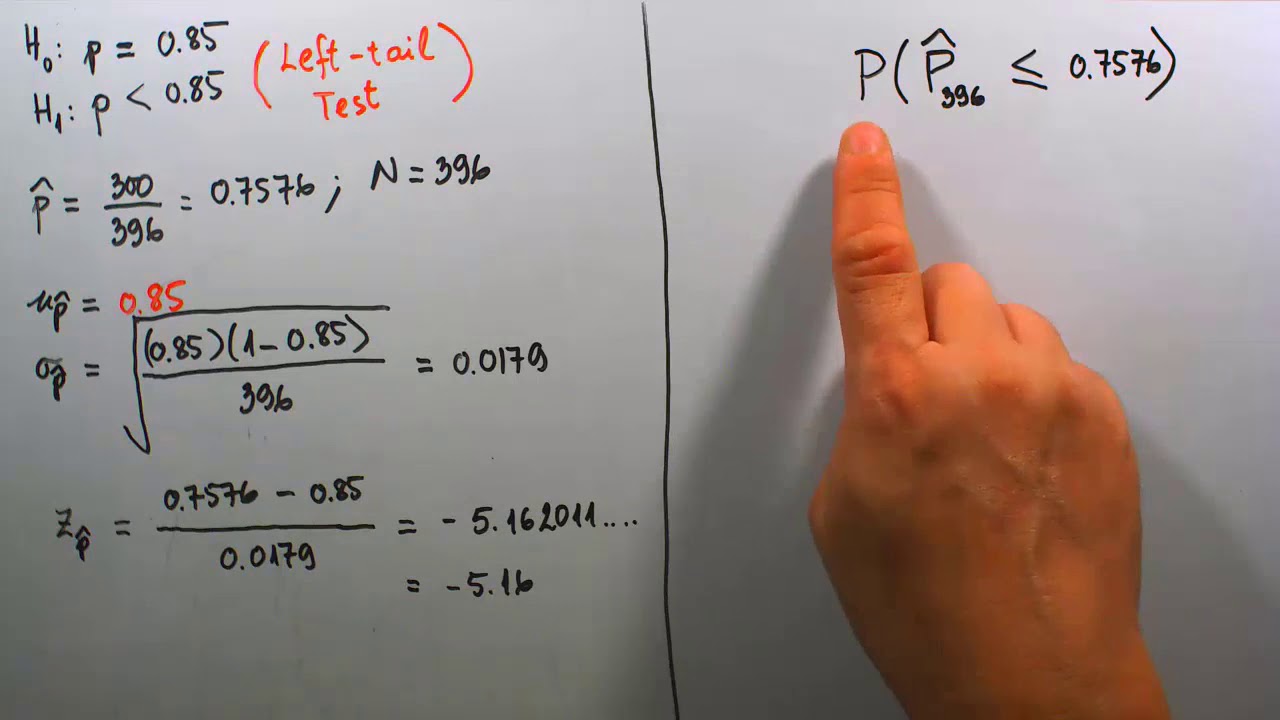 H₀: p = 0.85
H₁: p < 0.85
(Left-tail
Test)
p̂ = 300/396 = 0.7576 ; N = 396
μp̂ = 0.85
σp̂ = √((0.85)(1 - 0.85)/396) = 0.0179
Zp̂ = (0.7576 - 0.85)/0.0179 = -5.162011....
= -5.16
P(P̂₃₉₆ ≤ 0.7576)